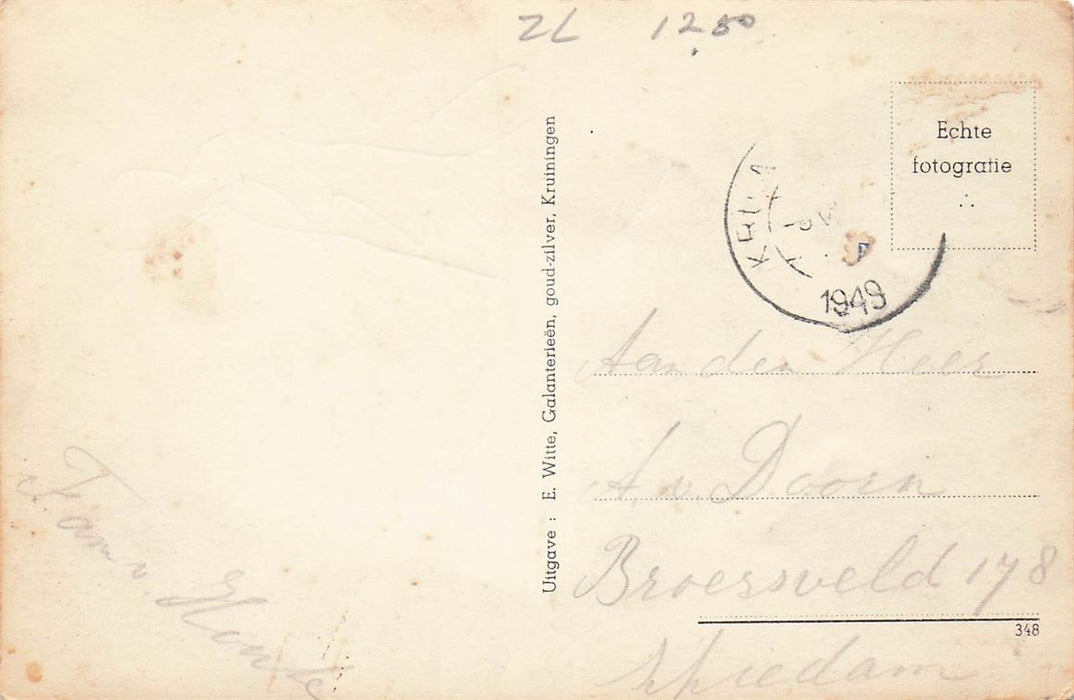 ZL 12.50
Echte
fotografie
Uitgave : E. Witte, Galanterieën, goud-zilver, Kruiningen
1949
Aan den Heer
A v. Doorn
Broersveld 178
Schiedam
348
Fam v.